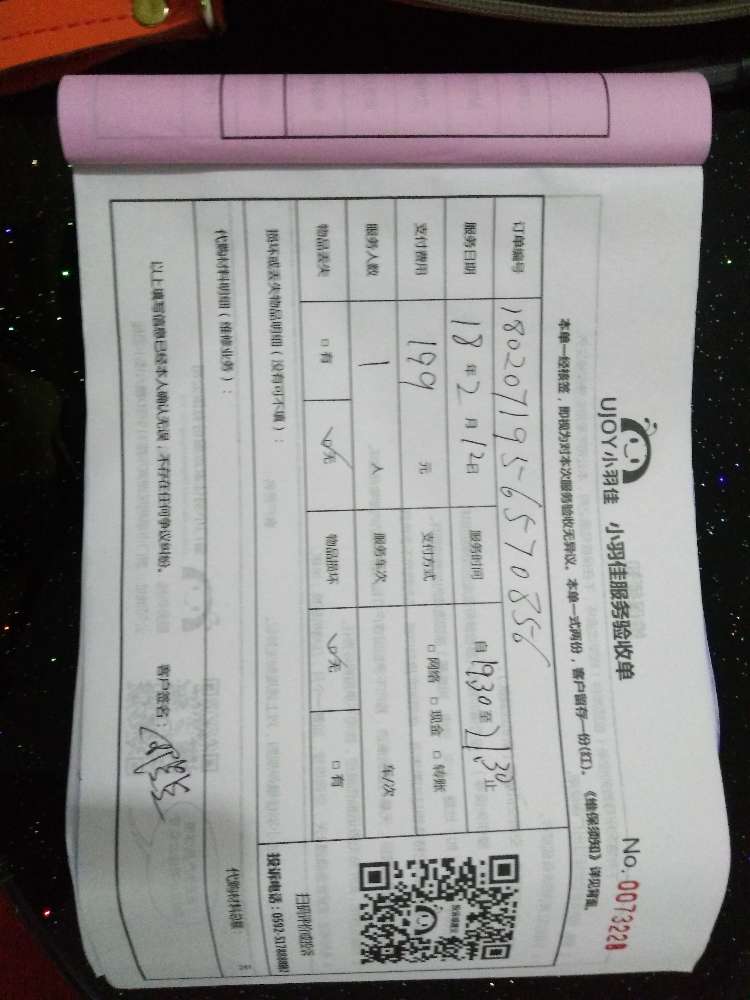 UJOY小羽佳 小羽佳服务验收单 No.0073228
本单一经接签，即视为对本次服务验收无异议。本单一式两份，客户留存一份(红)。《维保须知》详见背面。
订单编号 180207195656570856
服务日期 18年2月12日 服务时间 自19:30至21:30止
支付费用 199 元 支付方式 □网络 □现金 □转账
服务人数 1 人 服务车次 车/次
物品丢失 □有 ☑无 物品损坏 ☑无 □有
损坏或丢失物品明细（没有可不填）：
扫码评价或投客
投诉电话：0592-5178888
代购材料明细（维修业务）：
代购材料总额： 元
以上填写信息已经本人确认无误，不存在任何争议纠纷。 客户签名：